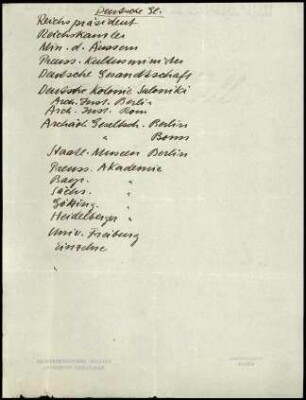 Deutsche St.
Reichspräsident
Reichskanzler
Min. d. Äussern
Preuss. Kultusminister
Deutsche Gesandtschaft
Deutsche Kolonie Saloniki
Arch. Inst. Berlin
Arch. Inst. Rom
Archäol. Gesellsch. Berlin
" Bonn
Staatl. Museen Berlin
Preuss. Akademie
Bayr. "
Sächs. "
Götting. "
Heidelberger "
Univ. Freiburg
Einzelne